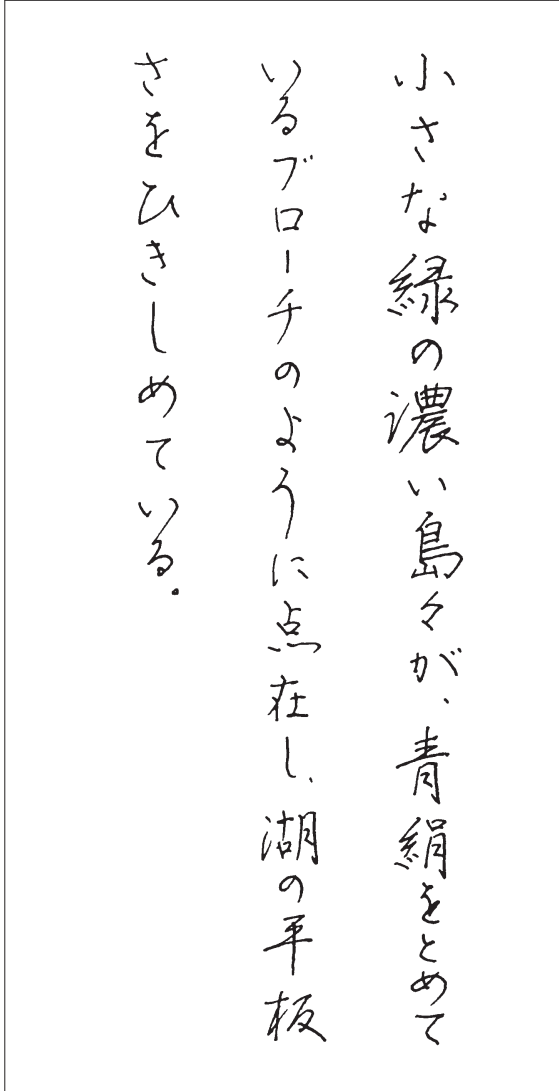 小さな緑の濃い島々が、青絹をとめて
いるブローチのように点在し、湖の平板
さをひきしめている。